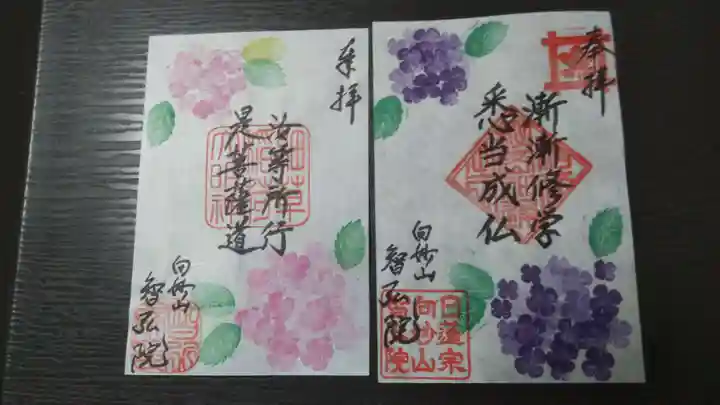 奉拝
汝等所行
是菩薩道
向妙山
智弘院
奉拝
漸漸修学
悉当成仏
向妙山
智弘院
日蓮宗
向妙山
智弘院